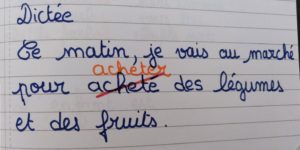 Dictée
Ce matin, je vais au marché
acheter
pour achete des légumes
et des fruits.